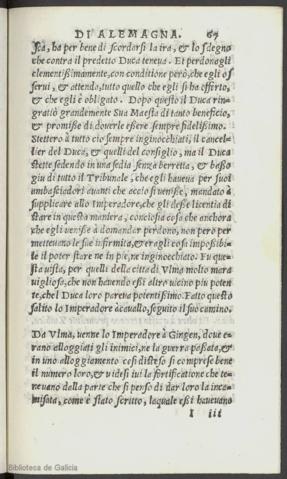 DI ALEMAGNA. 67
sta, ha per bene di scordarsi la ira, & lo sdegno
che contra il predetto Duca teneua. Et perdonagli
clementißimamente, con conditione però, che egli os
serui, & attendo, tutto quello che egli si ha offerto,
& che egli è obligato. Dopo questo il Duca rin‑
gratiò grandemente Sua Maestà di tanto beneficio,
& promisse di douerle eßere sempre fidelißimo.
Stettero à tutto ciò sempre inginocchiati, il cancel‑
lier del Duca, & quelli del consiglio, ma il Duca
stette sedendo in una sedia senza berretta, & baßo
giu di tutto il Tribunale, che egli haueua per suoi
ambasciadori auanti che accio si venisse, mandato à
supplicare allo Imperadore, che gli deße licentia di
stare in questa maniera, conciosia cosa che anchora
che egli venisse à domandar perdono, non però per
metteuano le sue infirmità, & era gli cosi impoßibi‑
le il poter stare ne in pie, ne inginocchiato. Fu que‑
sta uista, per quelli della città di Vlma molto mara
uigliosa, che non hauendo eßi altro uicino piu poten
te, che l Duca loro pareua potentißimo. Fatto questo
salito lo Imperadore à cauallo, seguito il suo camino.
Da Vlma, uenne lo Imperadore à Gingen, doue e‑
rano alloggiati gli inimici, ne la guerra paßata, &
in uno alloggiamento cosi disteso si comprese bene
il numero loro, & uidesi iui la fortificatione che te‑
neuano dalla parte che si penso di dar loro la inca‑
misata, come è stato scritto, laquale eßi haueuano
I iii
Biblioteca de Galicia